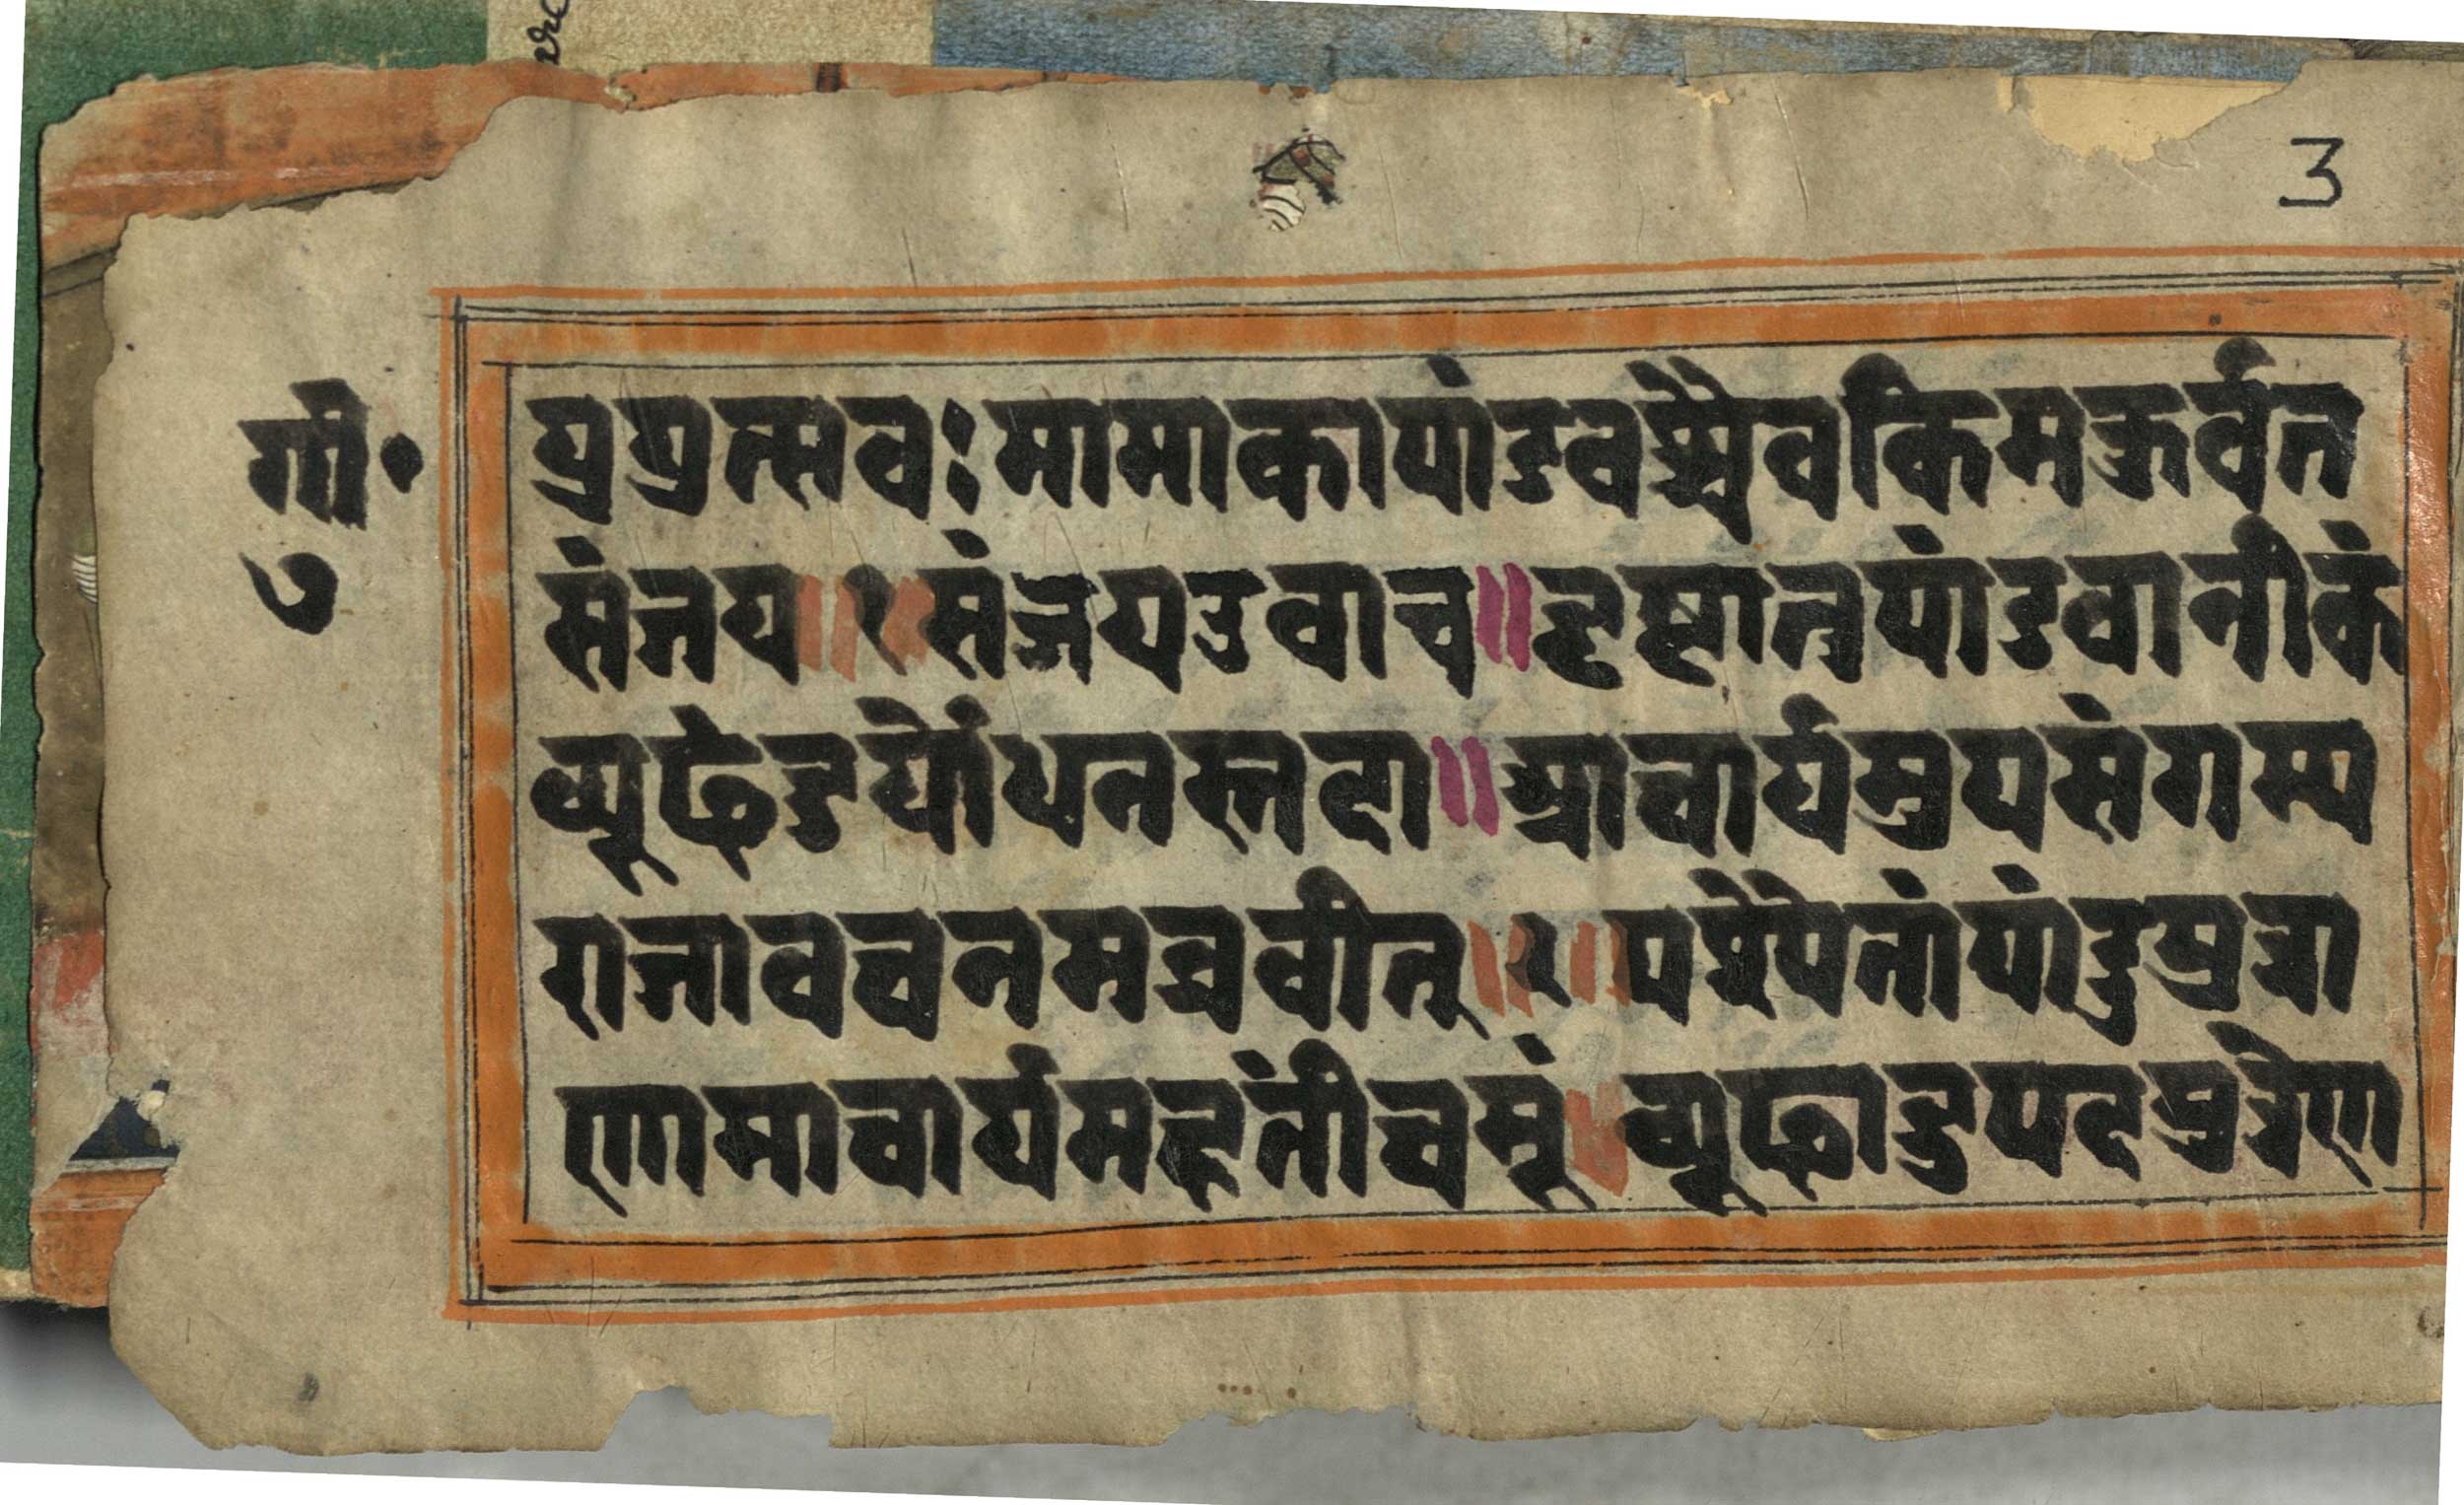 3
गी॰
७
युयुत्सवः मामाकापांडवश्चैवकिमकुर्वत
संजय॥१॥संजयउवाच॥दृष्टातुपांडवानीकं
व्यूढंदुर्योधनस्तदा॥आचार्यमुपसंगम्य
राजावचनमब्रवीत्॥२॥पश्यैपतांपांडुपुत्रा
णामाचार्यमहतींचमूं॥व्यूढाद्रुपदपुत्रेण